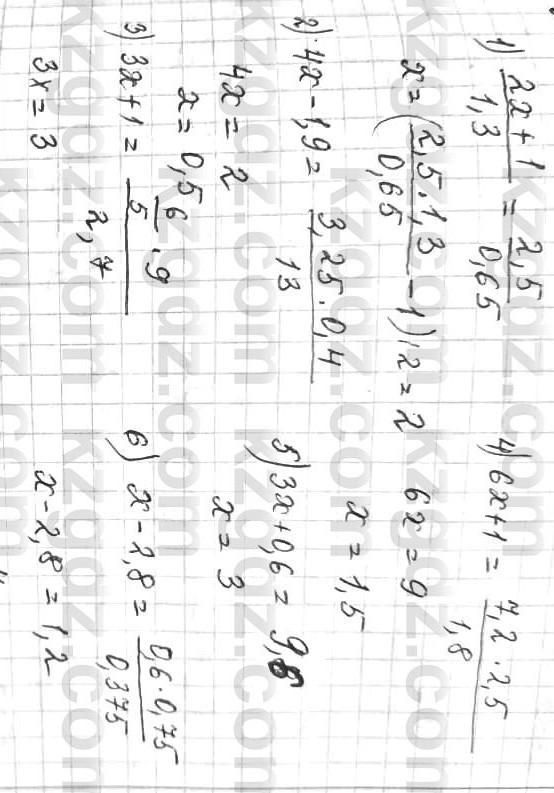 1) (2x+1)/1,3 = 2,5/0,65
x = (2,5·1,3/0,65 - 1):2 = 2
2) 4x - 1,9 = 3,25·0,4/13
4x = 2
x = 0,5
3) 3x+1 = (6/5·9)/2,7
3x = 3
4) 6x+1 = 7,2·2,5/1,8
6x = 9
x = 1,5
5) 3x+0,6 = 9,6
x = 3
6) x - 2,8 = 0,6·0,75/0,375
x - 2,8 = 1,2
kzgdz.com